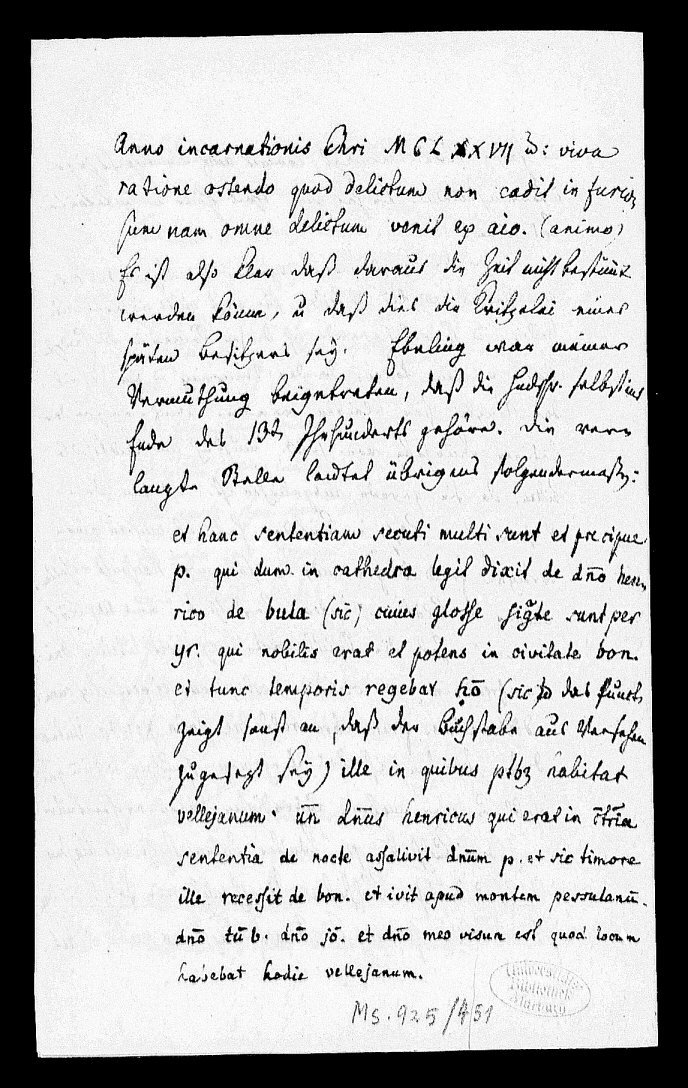 Anno incarnationis Chri MCLXXVII D: viva
ratione ostendo quod delictum non cadit in furio
sum nam omne delictum venit ex aio. (animo)
Es ist also klar daß daraus die Zeit nicht bestimt
werden könne, u daß dies die Kritzelei eines
späten Besitzers sey. Ebeling war meiner
Vermuthung beigetreten, daß die Hndschr. selbst ins
Ende des 13t Jhrhunderts gehöre. Die vern
langte Stelle lautet übrigens folgendermaßen:
et hanc sententiam secuti multi sunt et precipue
p. qui dum in cathedra legit dixit de dn̄o hen
rico de bula (sic) cuius glosse sunt per
yr. qui nobilis erat et potens in civitate bon.
et tunc temporis regebat (sic das Punkt
zeigt sonst an, daß der Buchstabe aus Versehen
zugesezt sey) ille in quibus ptbꝫ habitat
vellejanum. un̄ dn̄us henricus qui erat in c̄tria
sententia de nocte assalivit dnūm p. et sic timore
ille recessit de bon. et ivit apud montem pessulanū.
dn̄o tū b. dn̄o jō. et dn̄o meo visum est quod locum
habebat hodie vellejanum.
Universitäts
Bibliothek
Marburg
Ms. 925/451